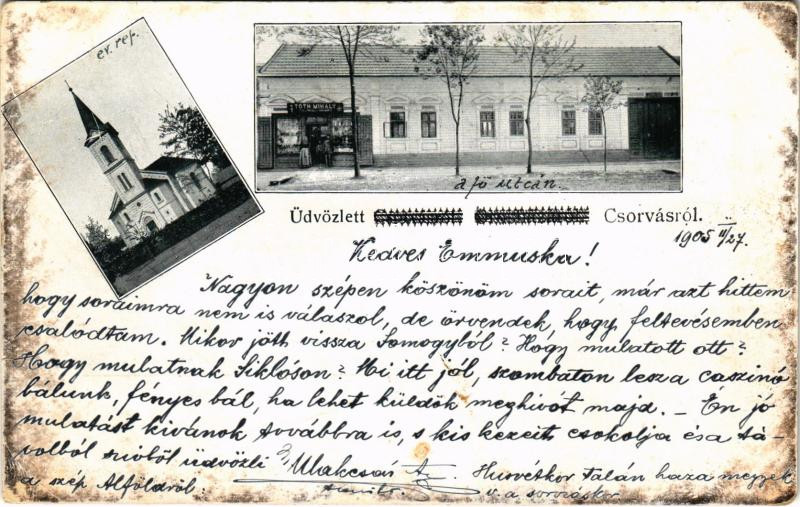 ev. ref.
TÓTH MIHÁLY
a fö utcán.
Üdvözlett Csorvásról.
1905 II/27.
Kedves Emmuska!
Nagyon szépen köszönöm sorait, már azt hittem
hogy soraimra nem is válaszol, de örvendek, hogy feltevésemben
csalódtam. Mikor jött vissza Somogyból? Hogy mulatott ott?
Hogy mulatnak Siklóson? Mi itt jól, szombaton lesz a caszinó
bálunk, fényes bál, ha lehet küldök meghivót majd. – Én jó
mulatást kivánok továbbra is, s kis kezeit csokolja és a tá-
volból szivből üdvözli
a szép Alföldről. Husvétkor talán haza megyek
v. a sorozáskor